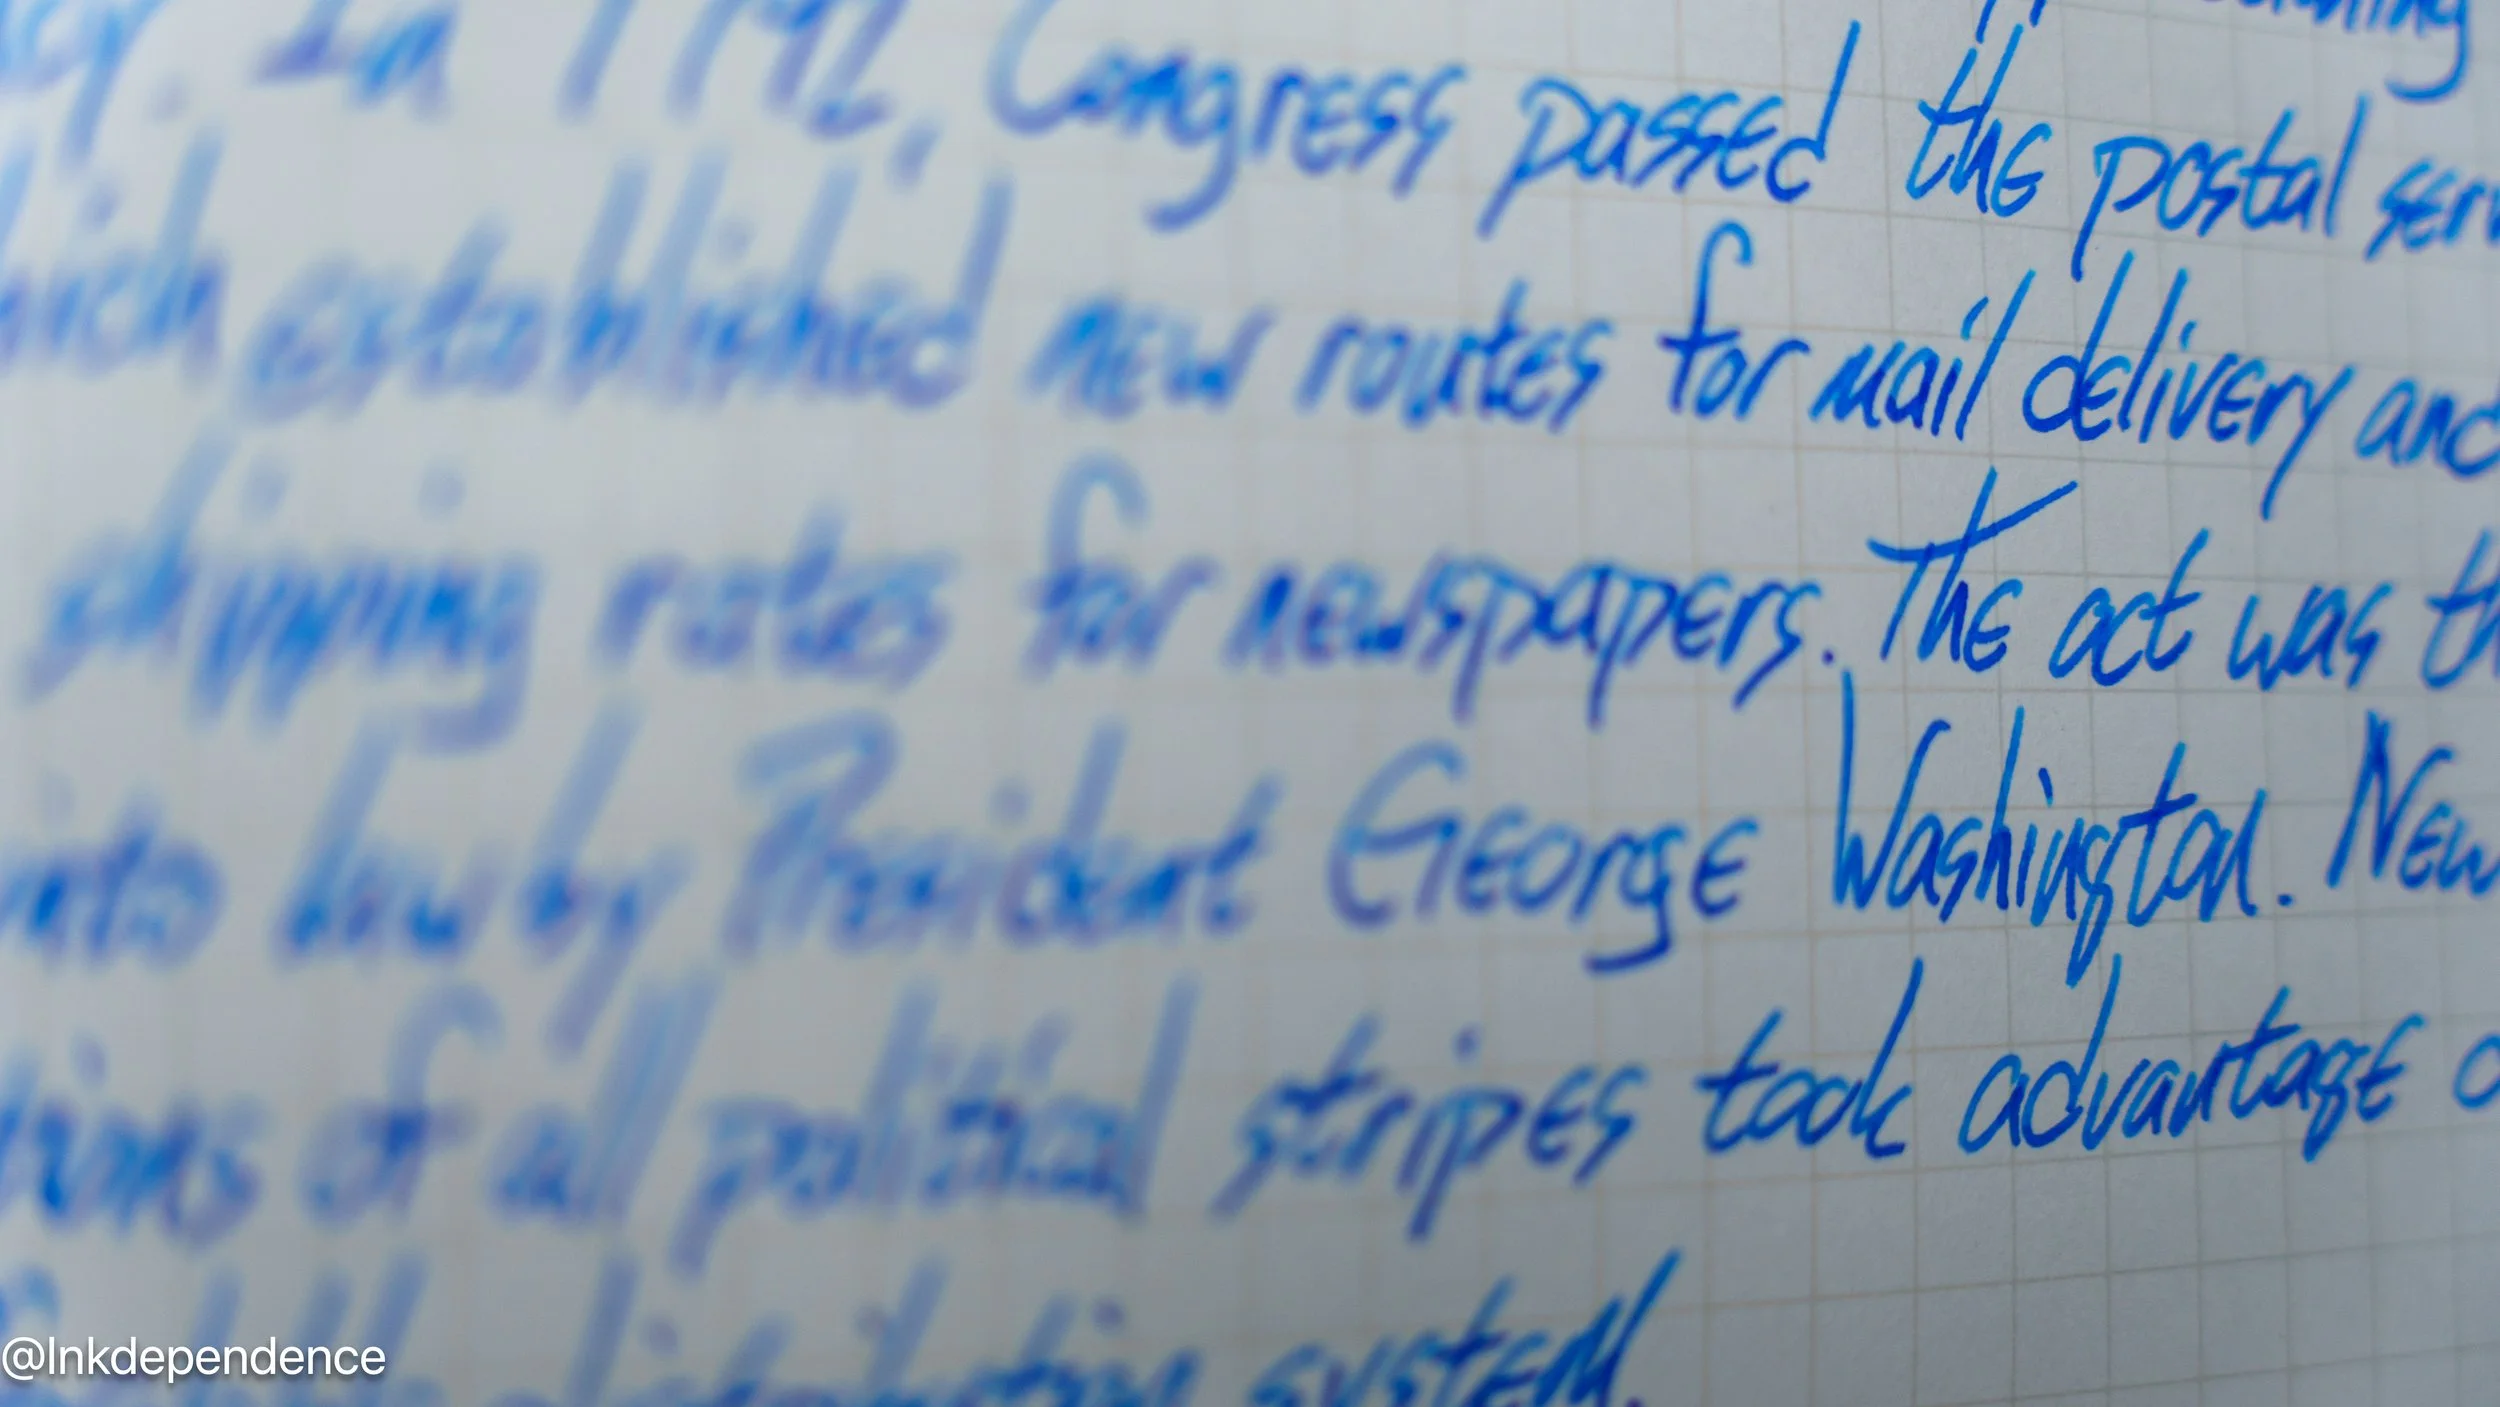 In 1792, Congress passed the postal serv
hich established new routes for mail delivery and
shipping rates for newspapers. The act was th
into law by President George Washington. New
tions of all political stripes took advantage o
distribution system.
@Inkdependence